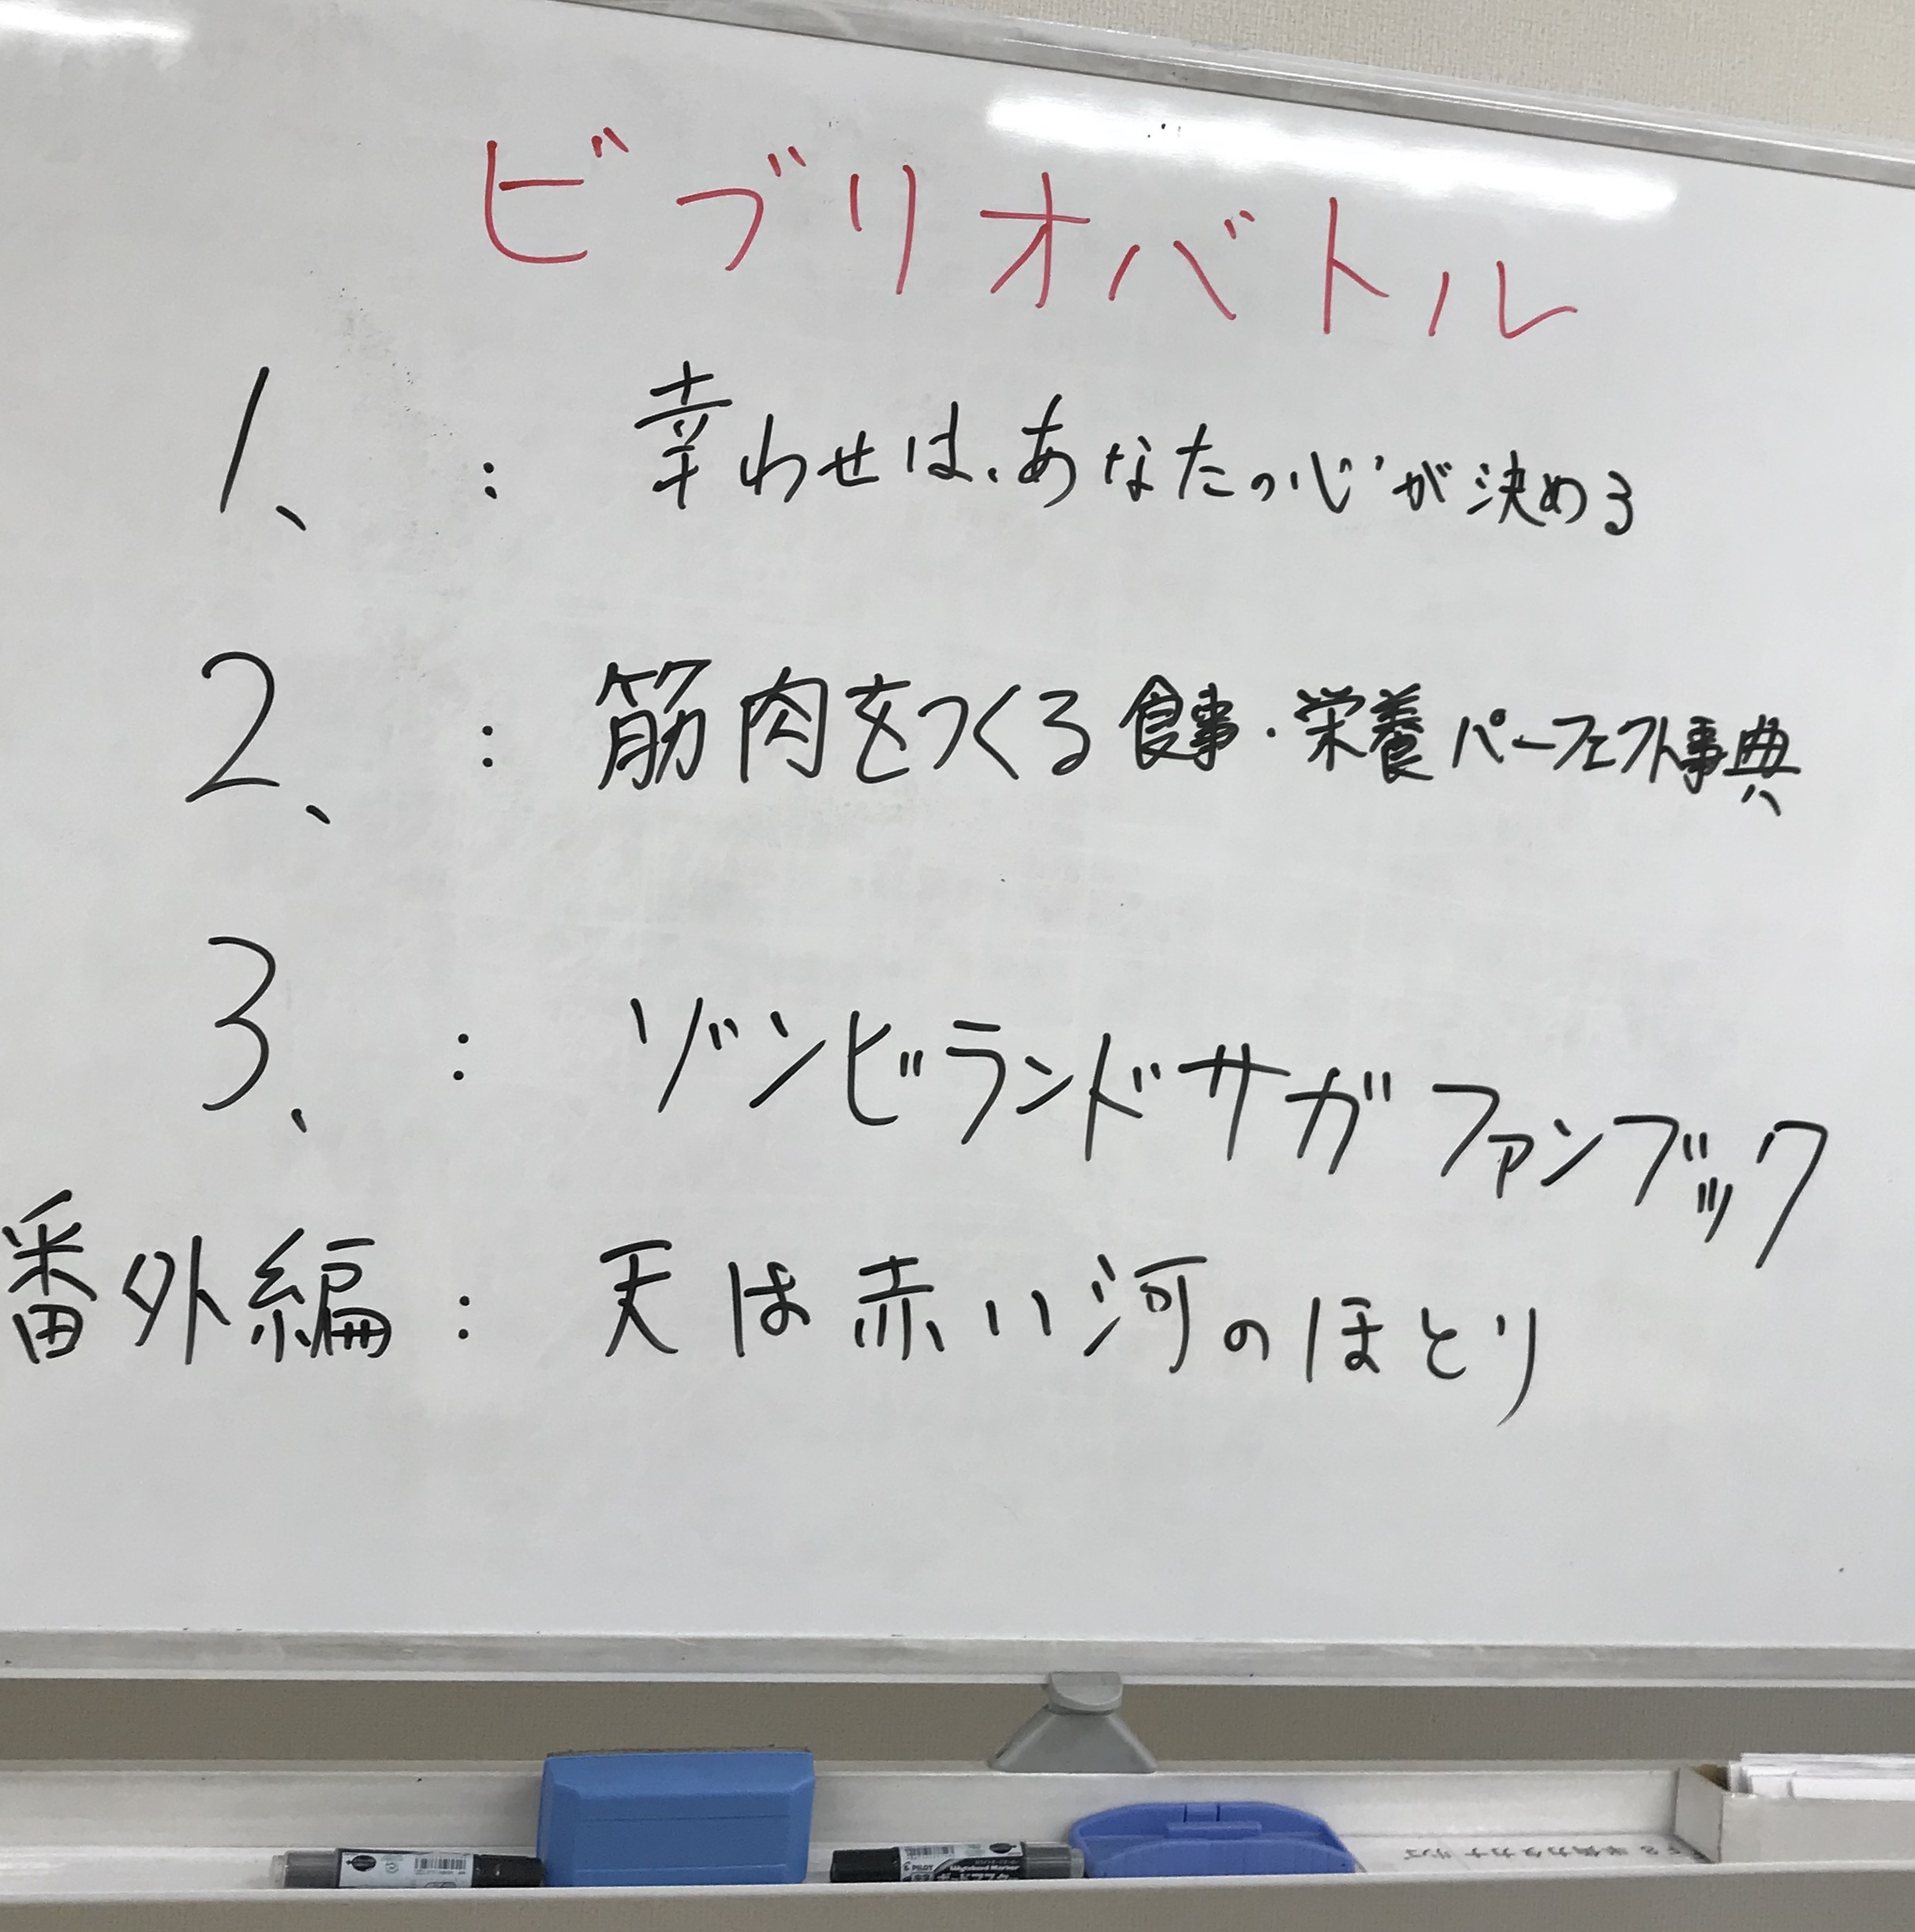 ビブリオバトル
1、 : 幸わせは、あなたの心が決める
2、 : 筋肉をつくる食事・栄養パーフェクト事典
3、 : ゾンビランドサガファンブック
番外編 : 天は赤い河のほとり
PILOT